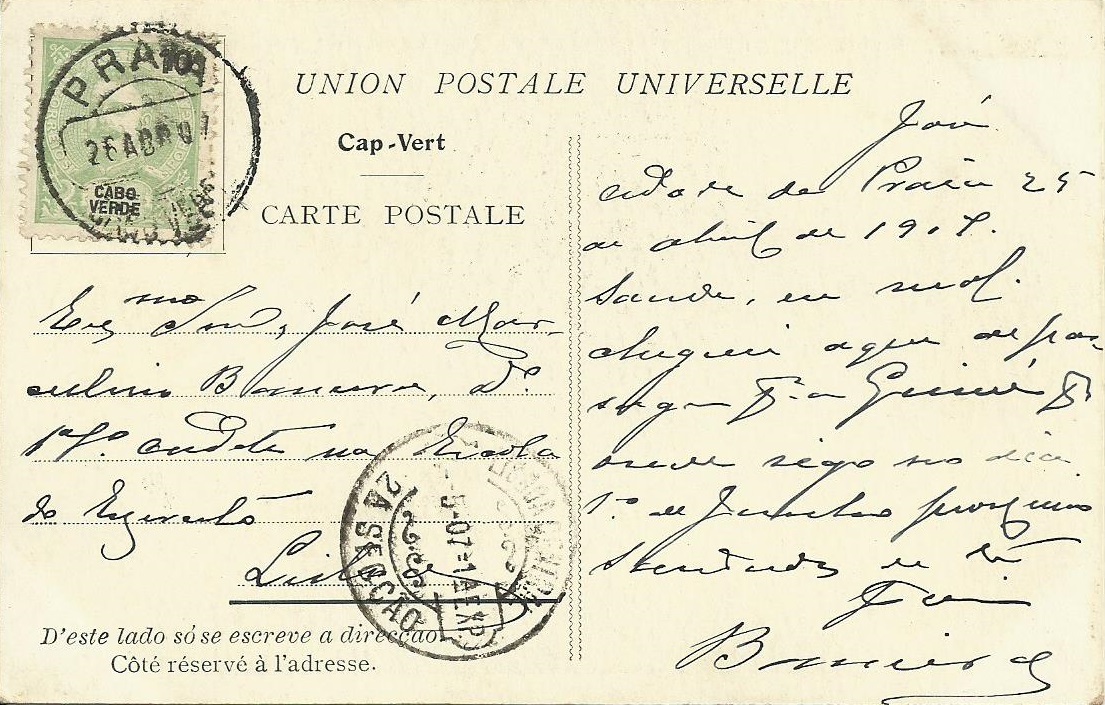 PRAIA
26 ABR 07
10
CABO
VERDE
UNION POSTALE UNIVERSELLE
Cap-Vert
CARTE POSTALE
Exmo Snr, José Mar-
celino Barreira, D.
1º cadete na Escola
do Exercito
Lisboa
2A SECÇÃO
5-07-1
D'este lado só se escreve a direcção.
Côté réservé à l'adresse.
José
cidade da Praia 25
de abril de 1907.
Saude, eu mal.
cheguei aqui de pas-
Guiné
onde sigo no dia
1º de Junho proximo
Barreira